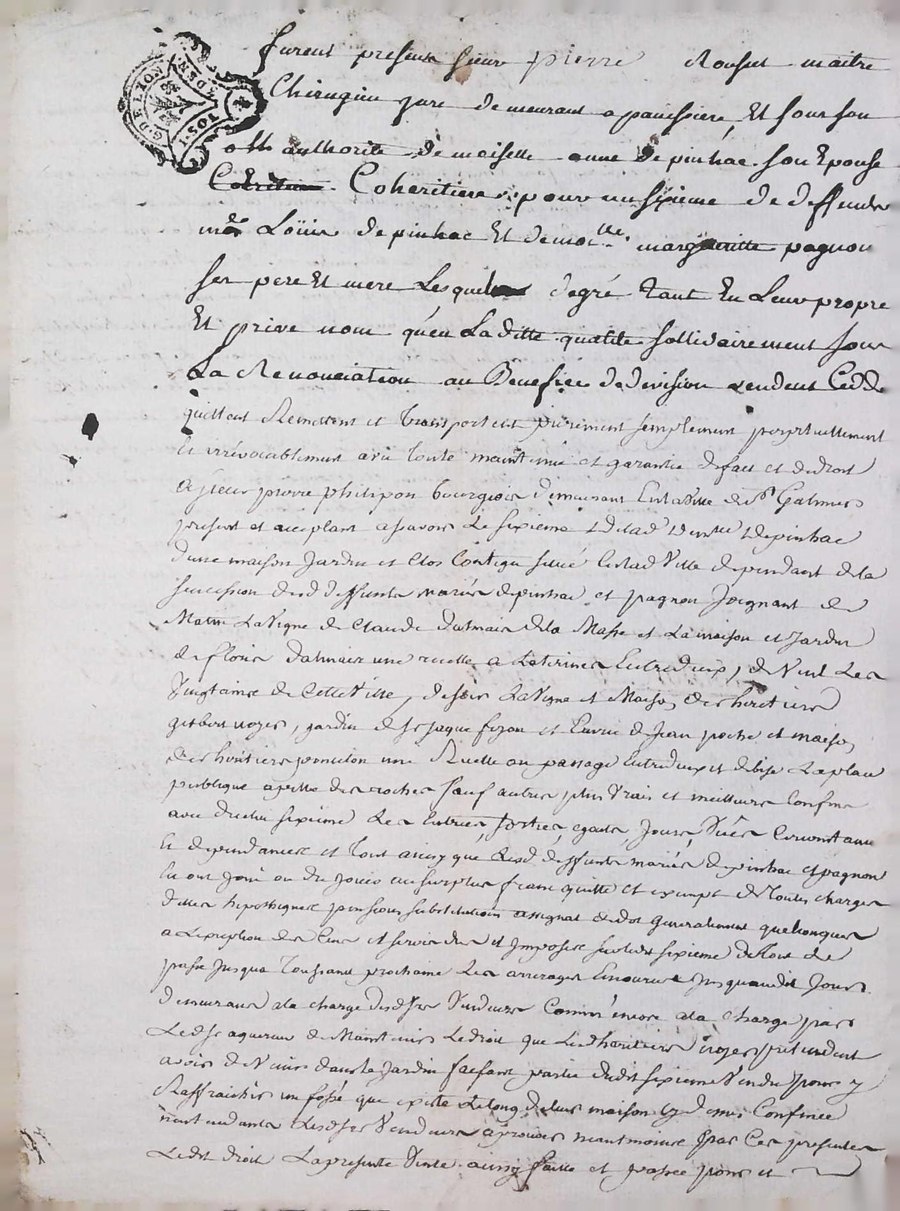 G. DE LYON
2 S. DER.
1 SOL
furent presents sieur pierre Rousset maitre
Chirugien jure demeurant a panissiere, Et sous son
authorité demoiselle anne depinhac son Epouse
Coheritiere pour un sixieme de deffunts
Loüis depinhac Et demoi.lle margueritte pagnon
ses pere Et mere Lesquels degré tant En Leur propre
Et privé nom qu'en La ditte qualité sollidairement sous
La Renonciation au Benefice de division vendent Cedde
quittent Remettent et transportent purement simplement perpetuellement
Et irrévocablement avec toute maintenüe et garantie de fait et de droit
A sieur pierre philipon bourgeois demeurant En la Ville de st Galmier
present et acceptant asavoir Le sixieme de lad. depinhac
dune maison Jardin et Clos Contigu situé En lad Ville dependant de la
succession desd deffunts mariés depinhac et pagnon Joignant de
Matin La Vigne de Claude dalmais de la Masse et La maison et Jardin
de floris dalmais une ruelle a Entredeux, de Vent Les
Vingtaines de Cette Ville, de soir La Vigne et Maison des heritiers
noyer, jardin de sr jaque et de Jean poche et maison
des heritiers une Ruelle ou passage Entredeux et de bise La place
publique apellée des roches sauf autres plus Vrais et meilleurs Confins
avec dudit sixieme Les Entrées, sorties, egouts, Jours, Vües Circonstances
Et dependances et tout ainsy que Lesd deffunts mariés depinhac et pagnon
En ont Joüi ou dû Joüir au surplus franc quitte et exempt de toutes charges
dettes hipothéques pensions substitutions assignat de dot generalement quelconques
a L'exception des Cens et servis dus et Imposés sur ledit sixieme de tout Le
passé Jusqua toussaint prochaine Les arrerages Encourus Jusquaudit Jour
demeurant ala charge desdits Vendeurs Comm'encore ala charge par
Ledit sr aquereur de Maintenir Le droit que Les heritiers noyer pretendent
avoir de Venir dans le Jardin faisant partie dudit sixieme Vendu pour y
Raffraichir un fossé que existe Le long de leur maison Cy dessus Confinée
Lesdits Vendeurs aprouver par Ces presentes
Ledit droit La presente Vente ainsy faitte et passée pour et